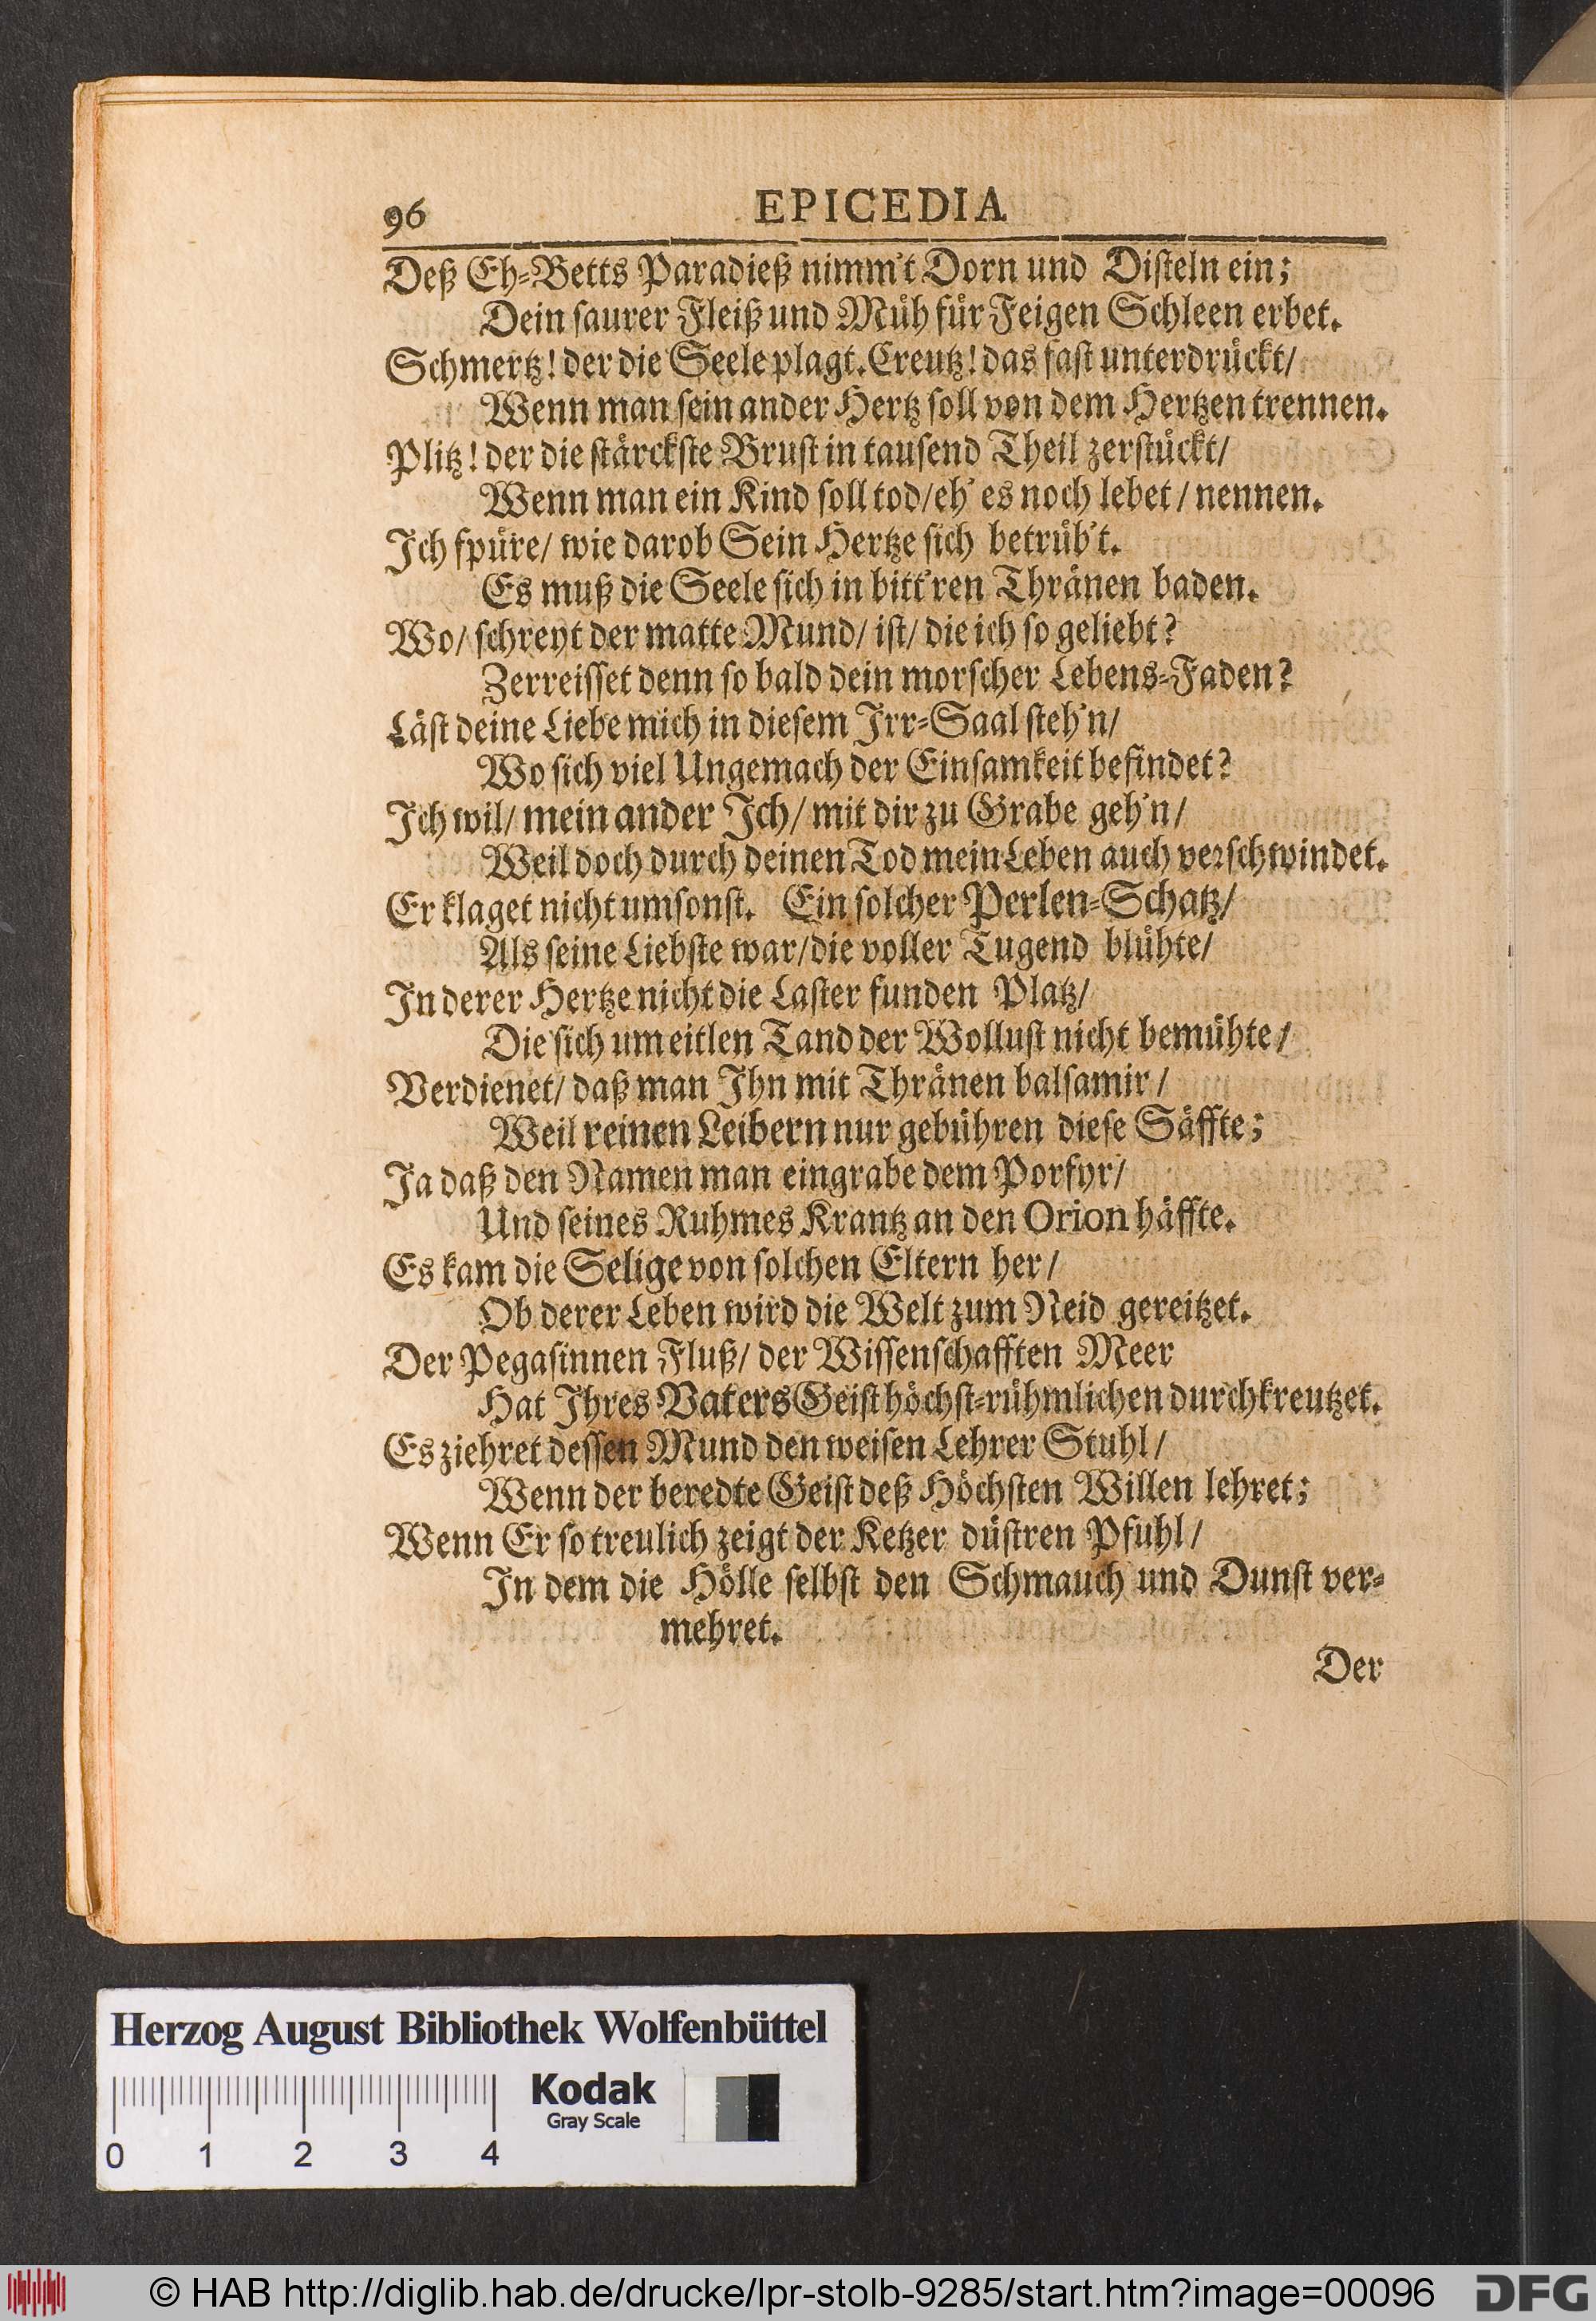 96 EPICEDIA
Deß Eh-Betts Paradieß nimm't Dorn und Disteln ein;
Dein saurer Fleiß und Müh für Feigen Schleen erbet.
Schmertz! der die Seele plagt. Creutz! das fast unterdrückt/
Wenn man sein ander Hertz soll von dem Hertzen trennen.
Plitz! der die stärckste Brust in tausend Theil zerstückt/
Wenn man ein Kind soll tod/eh' es noch lebet/ nennen.
Ich spüre/ wie darob Sein Hertze sich betrüb't.
Es muß die Seele sich in bitt'ren Thränen baden.
Wo/ schreyt der matte Mund/ ist/ die ich so geliebt?
Zerreisset denn so bald dein morscher Lebens-Faden?
Läst deine Liebe mich in diesem Irr-Saal steh'n/
Wo sich viel Ungemach der Einsamkeit befindet?
Ich wil/ mein ander Ich/ mit dir zu Grabe geh'n/
Weil doch durch deinen Tod mein Leben auch verschwindet.
Er klaget nicht umsonst. Ein solcher Perlen-Schatz/
Als seine Liebste war/die voller Tugend blühte/
In derer Hertze nicht die Laster funden Platz/
Die sich um eitlen Tand der Wollust nicht bemühte/
Verdienet/ daß man Ihn mit Thränen balsamir/
Weil reinen Leibern nur gebühren diese Säffte;
Ja daß den Namen man eingrabe dem Porfyr/
Und seines Ruhmes Krantz an den Orion häffte.
Es kam die Selige von solchen Eltern her/
Ob derer Leben wird die Welt zum Neid gereitzet.
Der Pegasinnen Fluß/ der Wissenschafften Meer
Hat Ihres Vaters Geist höchst-rühmlichen durchkreutzet.
Es ziehret dessen Mund den weisen Lehrer Stuhl/
Wenn der beredte Geist deß Höchsten Willen lehret;
Wenn Er so treulich zeigt der Ketzer düstren Pfuhl/
In dem die Hölle selbst den Schmauch und Dunst ver-
mehret.
Der
Herzog August Bibliothek Wolfenbüttel
Kodak
Gray Scale
0 1 2 3 4
© HAB http://diglib.hab.de/drucke/lpr-stolb-9285/start.htm?image=00096 DFG